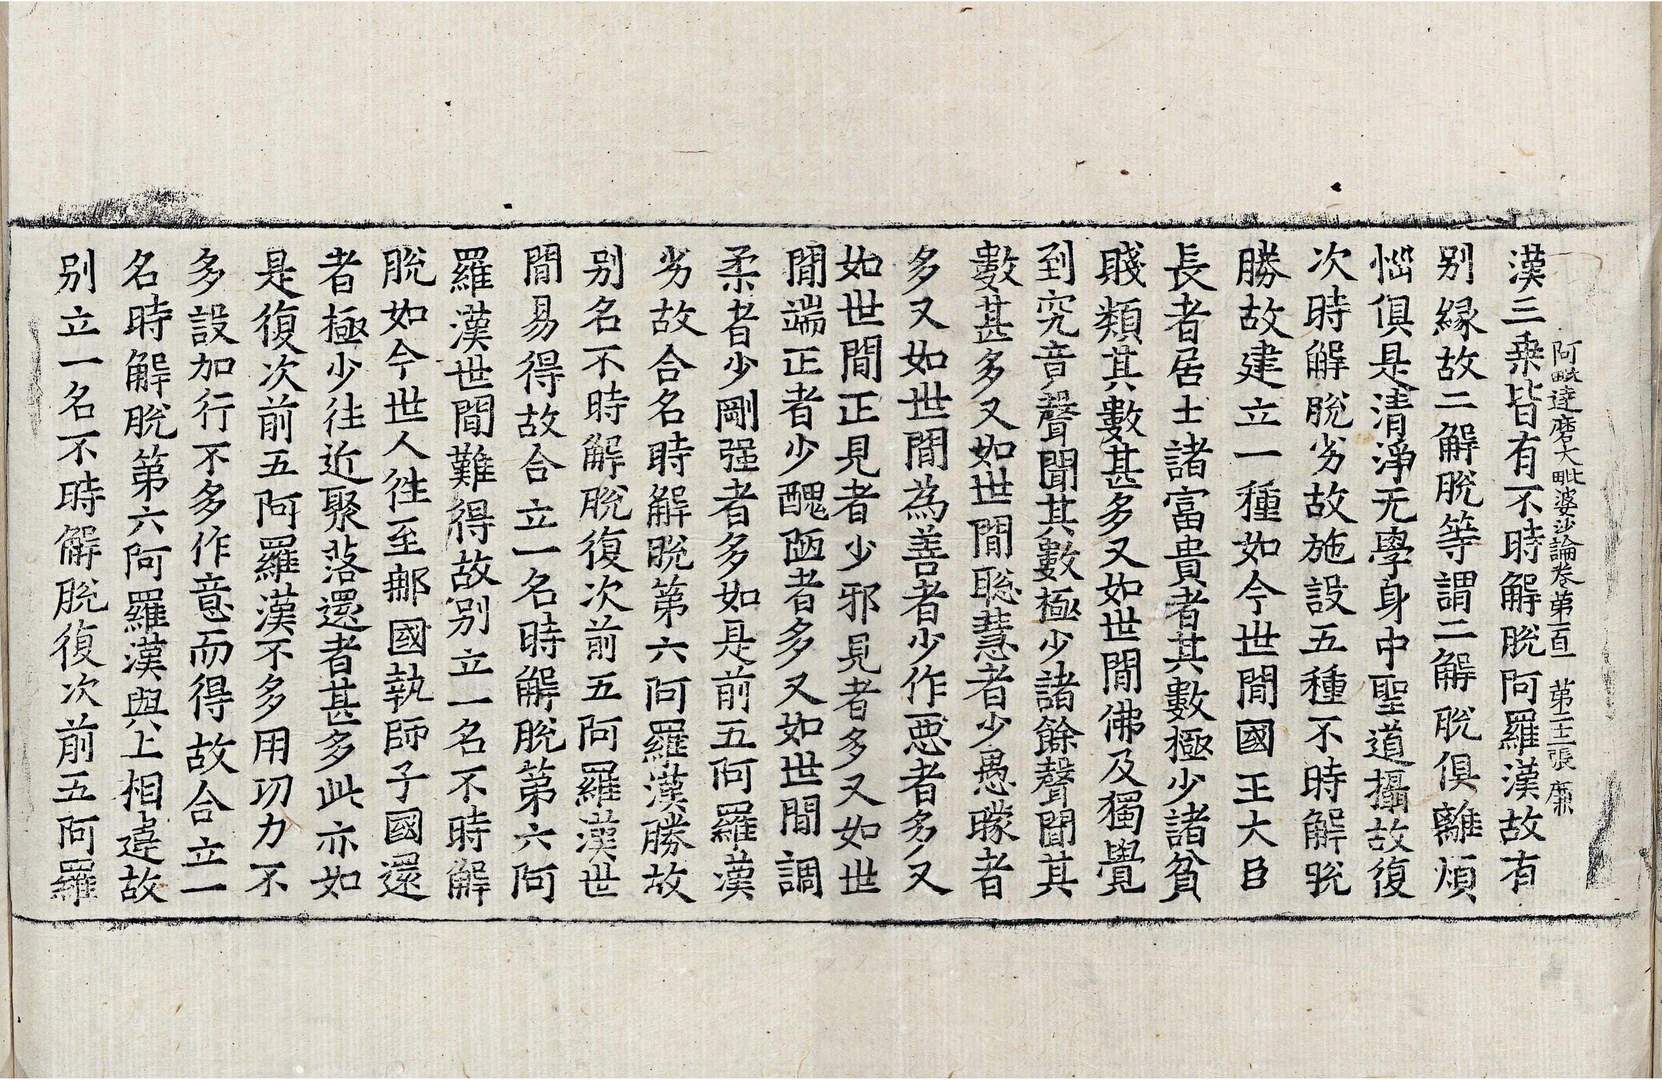 阿毗達磨大毗婆沙論卷第一百一　第二十一張　廉
漢三乗皆有不時解脫阿羅漢故有
别縁故二解脫等謂二解脫俱離煩
惱俱是清淨无學身中聖道攝故復
次時解脫劣故施設五種不時解脫
勝故建立一種如今世間國王大臣
長者居士諸富貴者其數極少諸貧
賤類其數甚多又如世間佛及獨覺
到究竟聲聞其數極少諸餘聲聞其
數甚多又如世間聡慧者少愚矇者
多又如世間為善者少作惡者多又
如世間正見者少邪見者多又如世
間端正者少醜陋者多又如世間調
柔者少剛强者多如是前五阿羅漢
劣故合名時解脫第六阿羅漢勝故
别名不時解脫復次前五阿羅漢世
間易得故合立一名時解脫第六阿
羅漢世間難得故别立一名不時解
脫如今世人徃至邊國執師子國還
者極少往近聚落還者甚多此亦如
是復次前五阿羅漢不多用功力不
多設加行不多作意而得故合立一
名時解脫第六阿羅漢與上相違故
别立一名不時解脫復次前五阿羅